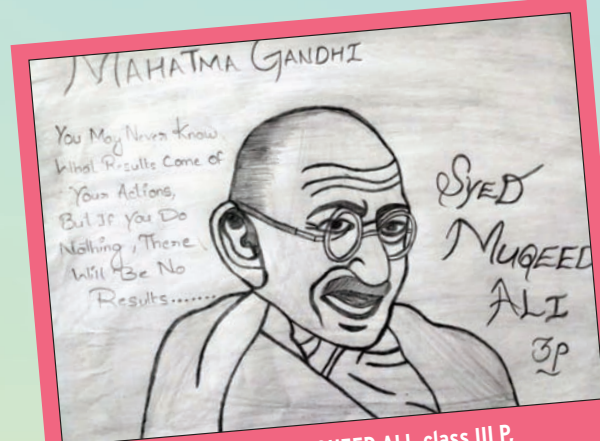 MAHATMA GANDHI
You May Never Know
What Results Come of
Your Actions,
But If You Do
Nothing, There
Will Be No
Results.......
SYED
MUQEED
ALI
3P
ALI, class III P.